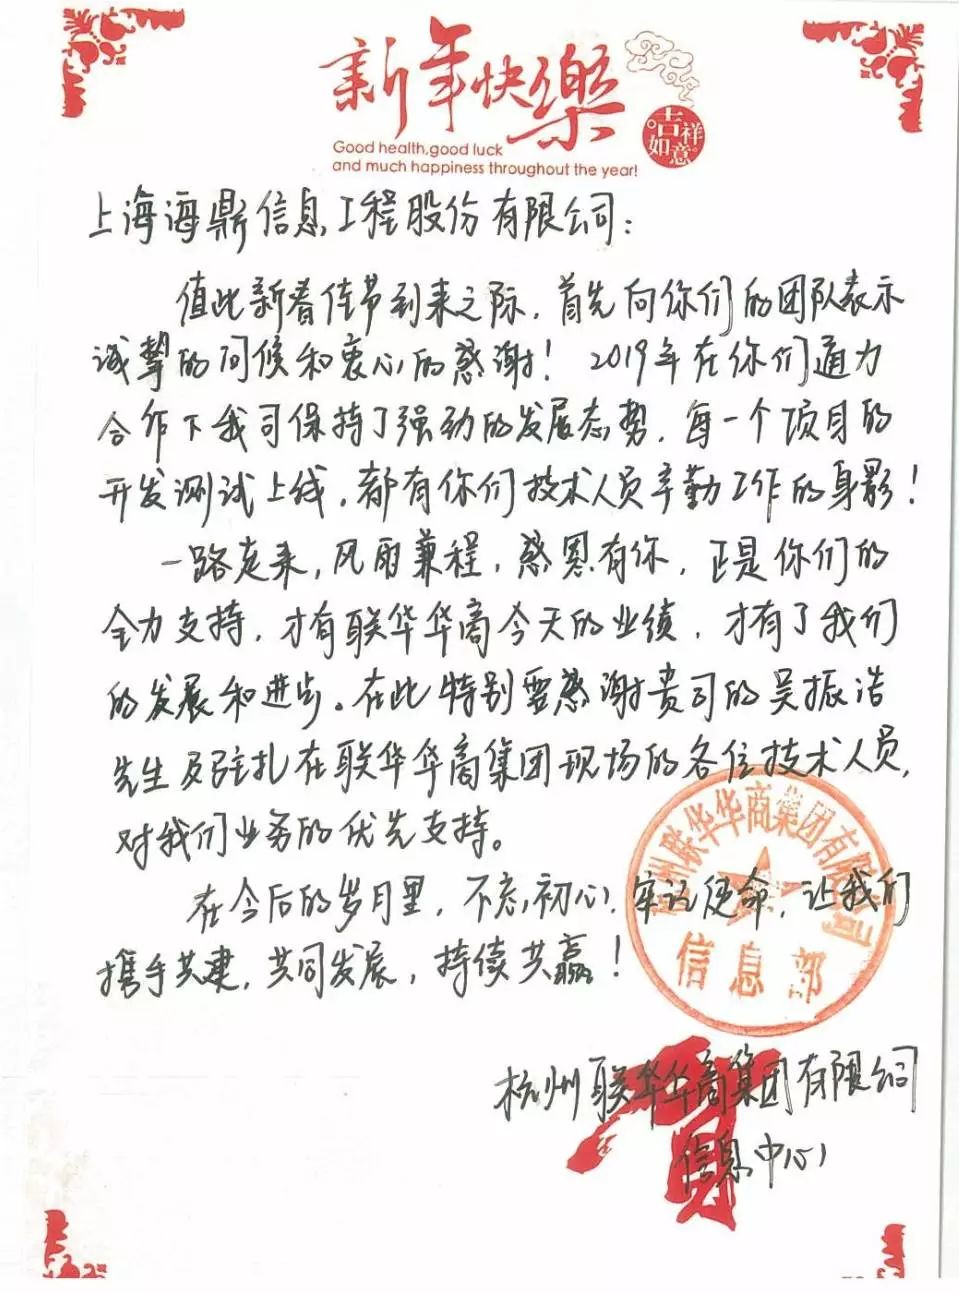 新年快樂
吉祥
如意
Good health,good luck
and much happiness throughout the year!
上海海鼎信息工程股份有限公司：
值此新春佳节到来之际，首先向你们的团队表示
诚挚的问候和衷心的感谢！2019年在你们通力
合作下我司保持了强劲的发展态势，每一个项目的
开发测试上线，都有你们技术人员辛勤工作的身影！
一路走来，风雨兼程，感恩有你，正是你们的
全力支持，才有联华华商今天的业绩，才有了我们
的发展和进步。在此特别要感谢贵司的吴振浩
先生及驻扎在联华华商集团现场的各位技术人员，
对我们业务的优先支持。
在今后的岁月里，不忘初心，牢记使命，让我们
携手共建，共同发展，持续共赢！
杭州联华华商集团有限公司
信息部
杭州联华华商集团有限公司
信息中心
贺